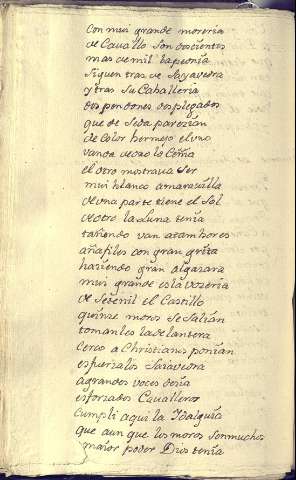 Con mui grande moreria
de Cavallo son docientos
mas de mil la peonia
siguen tras de Sayavedra
y tras su Caballeria
dos pendones desplegados
que de Seda parezian
de Color bermejo el uno
vanda de oro lo Cenia
el otro mostrava Ser
mui blanco amaravilla
de una parte tiene el Sol
de otro la Luna tenia
tañendo van atambores
añafiles con gran grita
haziendo gran algazara
mui grande es la vozeria
de Setenil el Castillo
quinze moros se Salian
tomanles la delantera
Cerco a Christianos ponian
esfuerzalos Saiavedra
a grandes voces dezia
esforzados Cavalleros
Cumpli aqui la Ydalguia
que aun que los moros son muchos
maior poder Dios tenia